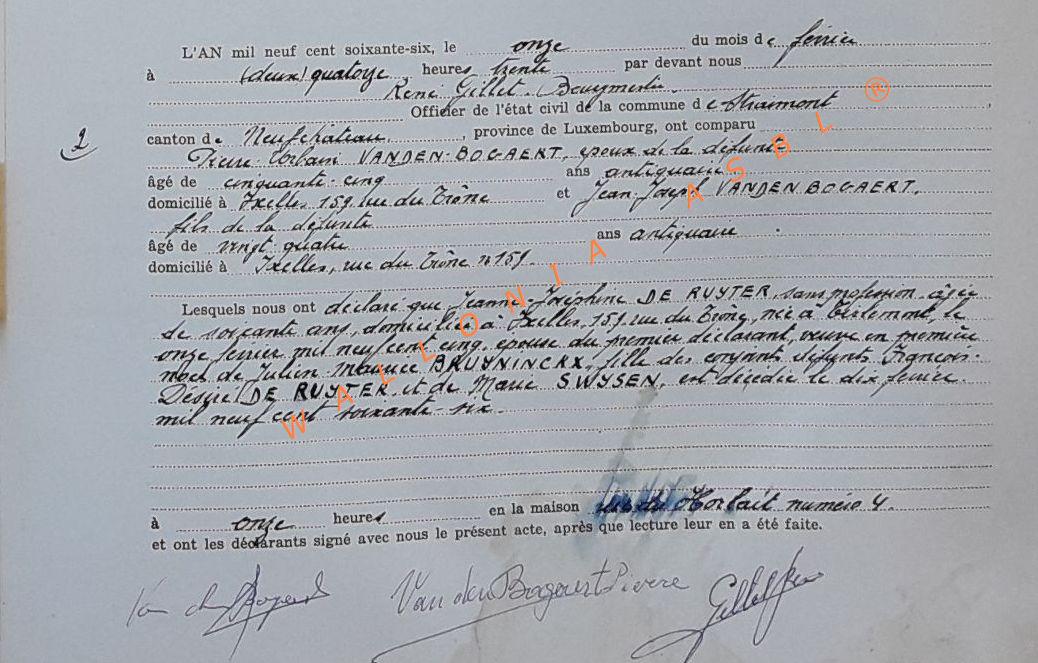 L'AN mil neuf cent soixante-six, le onze du mois de février
à (deux) quatorze heures trente par devant nous
René Gillet-
Officier de l'état civil de la commune de Straimont,
2
canton de Neufchâteau, province de Luxembourg, ont comparu
Pierre-Urbain VANDEN-BOGAERT, époux de la défunte
âgé de cinquante-cinq ans antiquaire
domicilié à Ixelles, 159 rue du Trône et Jean-Joseph VANDEN BOGAERT,
fils de la défunte
âgé de vingt quatre ans antiquaire
domicilié à Ixelles, rue du Trône n° 159.
Lesquels nous ont déclaré que Jeanne-Joséphine DE RUYTER, sans profession, âgée
de soixante ans, domiciliée à Ixelles, 159 rue du Trône, née à Tirlemont, le
onze février mil neuf cent cinq, épouse du premier déclarant, veuve en première
noces de Julien-Maurice BRUYNINCKX, fille des conjoints défunts François-
Désiré DE RUYTER et de Marie SWYSEN, est décédée le dix février
mil neuf cent soixante-six.
à onze heures en la maison rue du Horlait numéro 4.
et ont les déclarants signé avec nous le présent acte, après que lecture leur en a été faite.
Vanden Bogaert Pierre
Gillet
WALLONIA ASBL ®